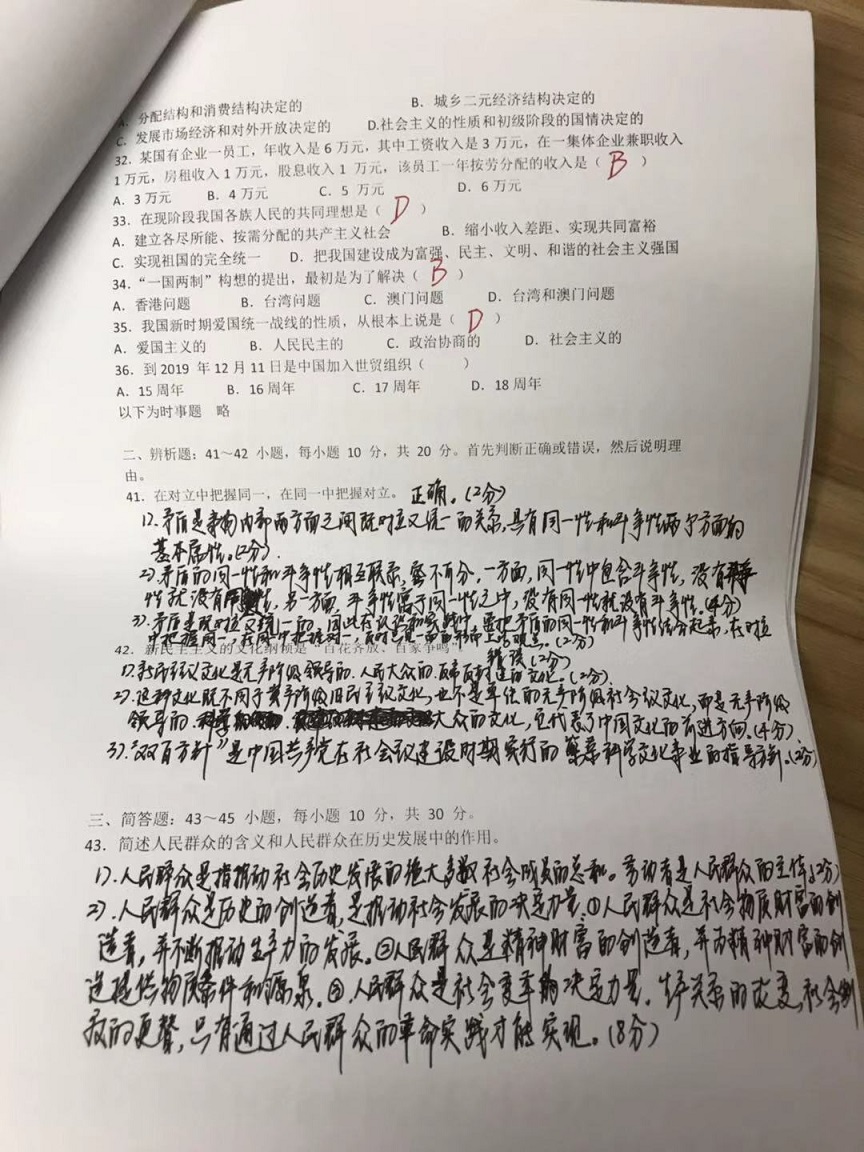 分配结构和消费结构决定的 B、城乡二元经济结构决定的
C、发展市场经济和对外开放决定的 D.社会主义的性质和初级阶段的国情决定的
32. 某国有企业一员工，年收入是 6 万元，其中工资收入是 3 万元，在一集体企业兼职收入
1 万元，房租收入 1 万元，股息收入 1 万元，该员工一年按劳分配的收入是（ B ）
A．3 万元 B．4 万元 C．5 万元 D．6 万元
33．在现阶段我国各族人民的共同理想是（ D ）
A．建立各尽所能、按需分配的共产主义社会 B．缩小收入差距、实现共同富裕
C．实现祖国的完全统一 D．把我国建设成为富强、民主、文明、和谐的社会主义强国
34．“一国两制”构想的提出，最初是为了解决（ B ）
A．香港问题 B．台湾问题 C．澳门问题 D．台湾和澳门问题
35．我国新时期爱国统一战线的性质，从根本上说是（ D ）
A．爱国主义的 B．人民民主的 C．政治协商的 D．社会主义的
36．到 2019 年 12 月 11 日是中国加入世贸组织（ ）
A．15 周年 B．16 周年 C．17 周年 D．18 周年
以下为时事题 略
二、辨析题：41～42 小题，每小题 10 分，共 20 分。首先判断正确或错误，然后说明理
由。
41．在对立中把握同一，在同一中把握对立。 正确。(2分)
1).矛盾是事物内部两方面之间既对立又统一的关系,具有同一性和斗争性两个方面的
基本属性。(2分).
2).矛盾的同一性和斗争性相互联系,密不可分,一方面,同一性中包含斗争性,没有斗争
性就没有同一性,另一方面,斗争性寓于同一性之中,没有同一性就没有斗争性。(4分)
3).矛盾是既对立又统一的,因此在认识和实践中,要把矛盾的同一性和斗争性结合起来,在对立
中把握同一,在同一中把握对立,(2分)
42．新民主主义的文化纲领是“百花齐放、百家争鸣” 错误(2分)
1).新民主主义文化是无产阶级领导的.人民大众的.反帝反封建的文化。(2分).
2).这种文化既不同于资产阶级旧民主主义文化,也不是单纯的无产阶级社会主义文化,而是无产阶级
领导的.大众的文化,它代表了中国文化的前进方向.(4分)
3).“双百方针”是中国共产党在社会主义建设时期实行的繁荣科学文化事业的指导方针。(2分)
三、简答题：43～45 小题，每小题 10 分，共 30 分。
43．简述人民群众的含义和人民群众在历史发展中的作用。
1).人民群众是指推动社会历史发展的绝大多数社会成员的总和。劳动者是人民群众的主体。(2分)
2).人民群众是历史的创造者,是推动社会发展的决定力量.①人民群众是社会物质财富的创
造者,并不断推动生产力的发展。②人民群众是精神财富的创造者,并为精神财富的创
造提供物质条件和源泉.③.人民群众是社会变革的决定力量.生产关系的改变,社会制
度的更替,只有通过人民群众的革命实践才能实现。(8分)